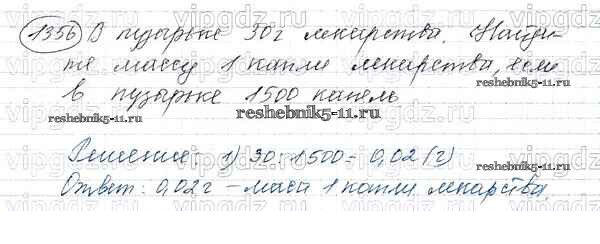 1356 В пузырьке 30 г лекарства. Найди-
те массу 1 капли лекарства, если
в пузырьке 1500 капель
reshebnik5-11.ru
reshebnik5-11.ru
Решение: 1) 30 : 1500 = 0,02 (г)
reshebnik5-11.ru
Ответ: 0,02 г – маса 1 капли лекарства.
vipgdz.ru